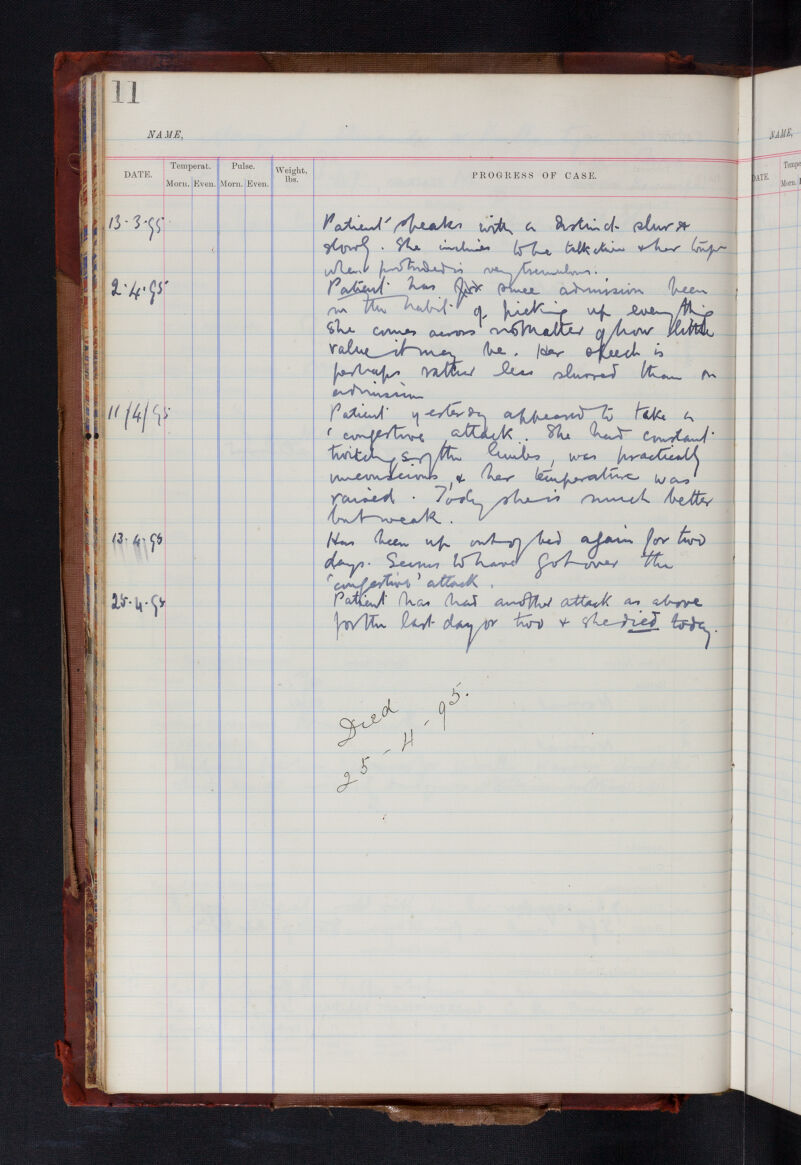 11
NAME,
NAME,
DATE. Temperat. Pulse. Weight, lbs. PROGRESS OF CASE.
Morn. Even. Morn. Even.
DATE. Tempe
Morn.
13-3-95 Patient speaks with a distinct slur &
slowly. She inclines to be talkative & her tongue
when protruded is very tremulous.
2.4.95 Patient has for since admission been
in the habit of picking up everything
she comes across no matter of how little
value it may be. Her speech is
perhaps rather less slurred than on
admission
11/4/95 Patient yesterday appeared to take a
'congestive attack.. She had constant
twitchings of the limbs, was practically
unconscious, & her temperature was
raised. Today she is much better
but weak.
13.4.95 Has been up out of bed again for two
days. Seems to have got over the
'congestive' attack.
25.4.95 Patient has had another attack as above
for the last day or two & she died today.
Died
25-4-95.